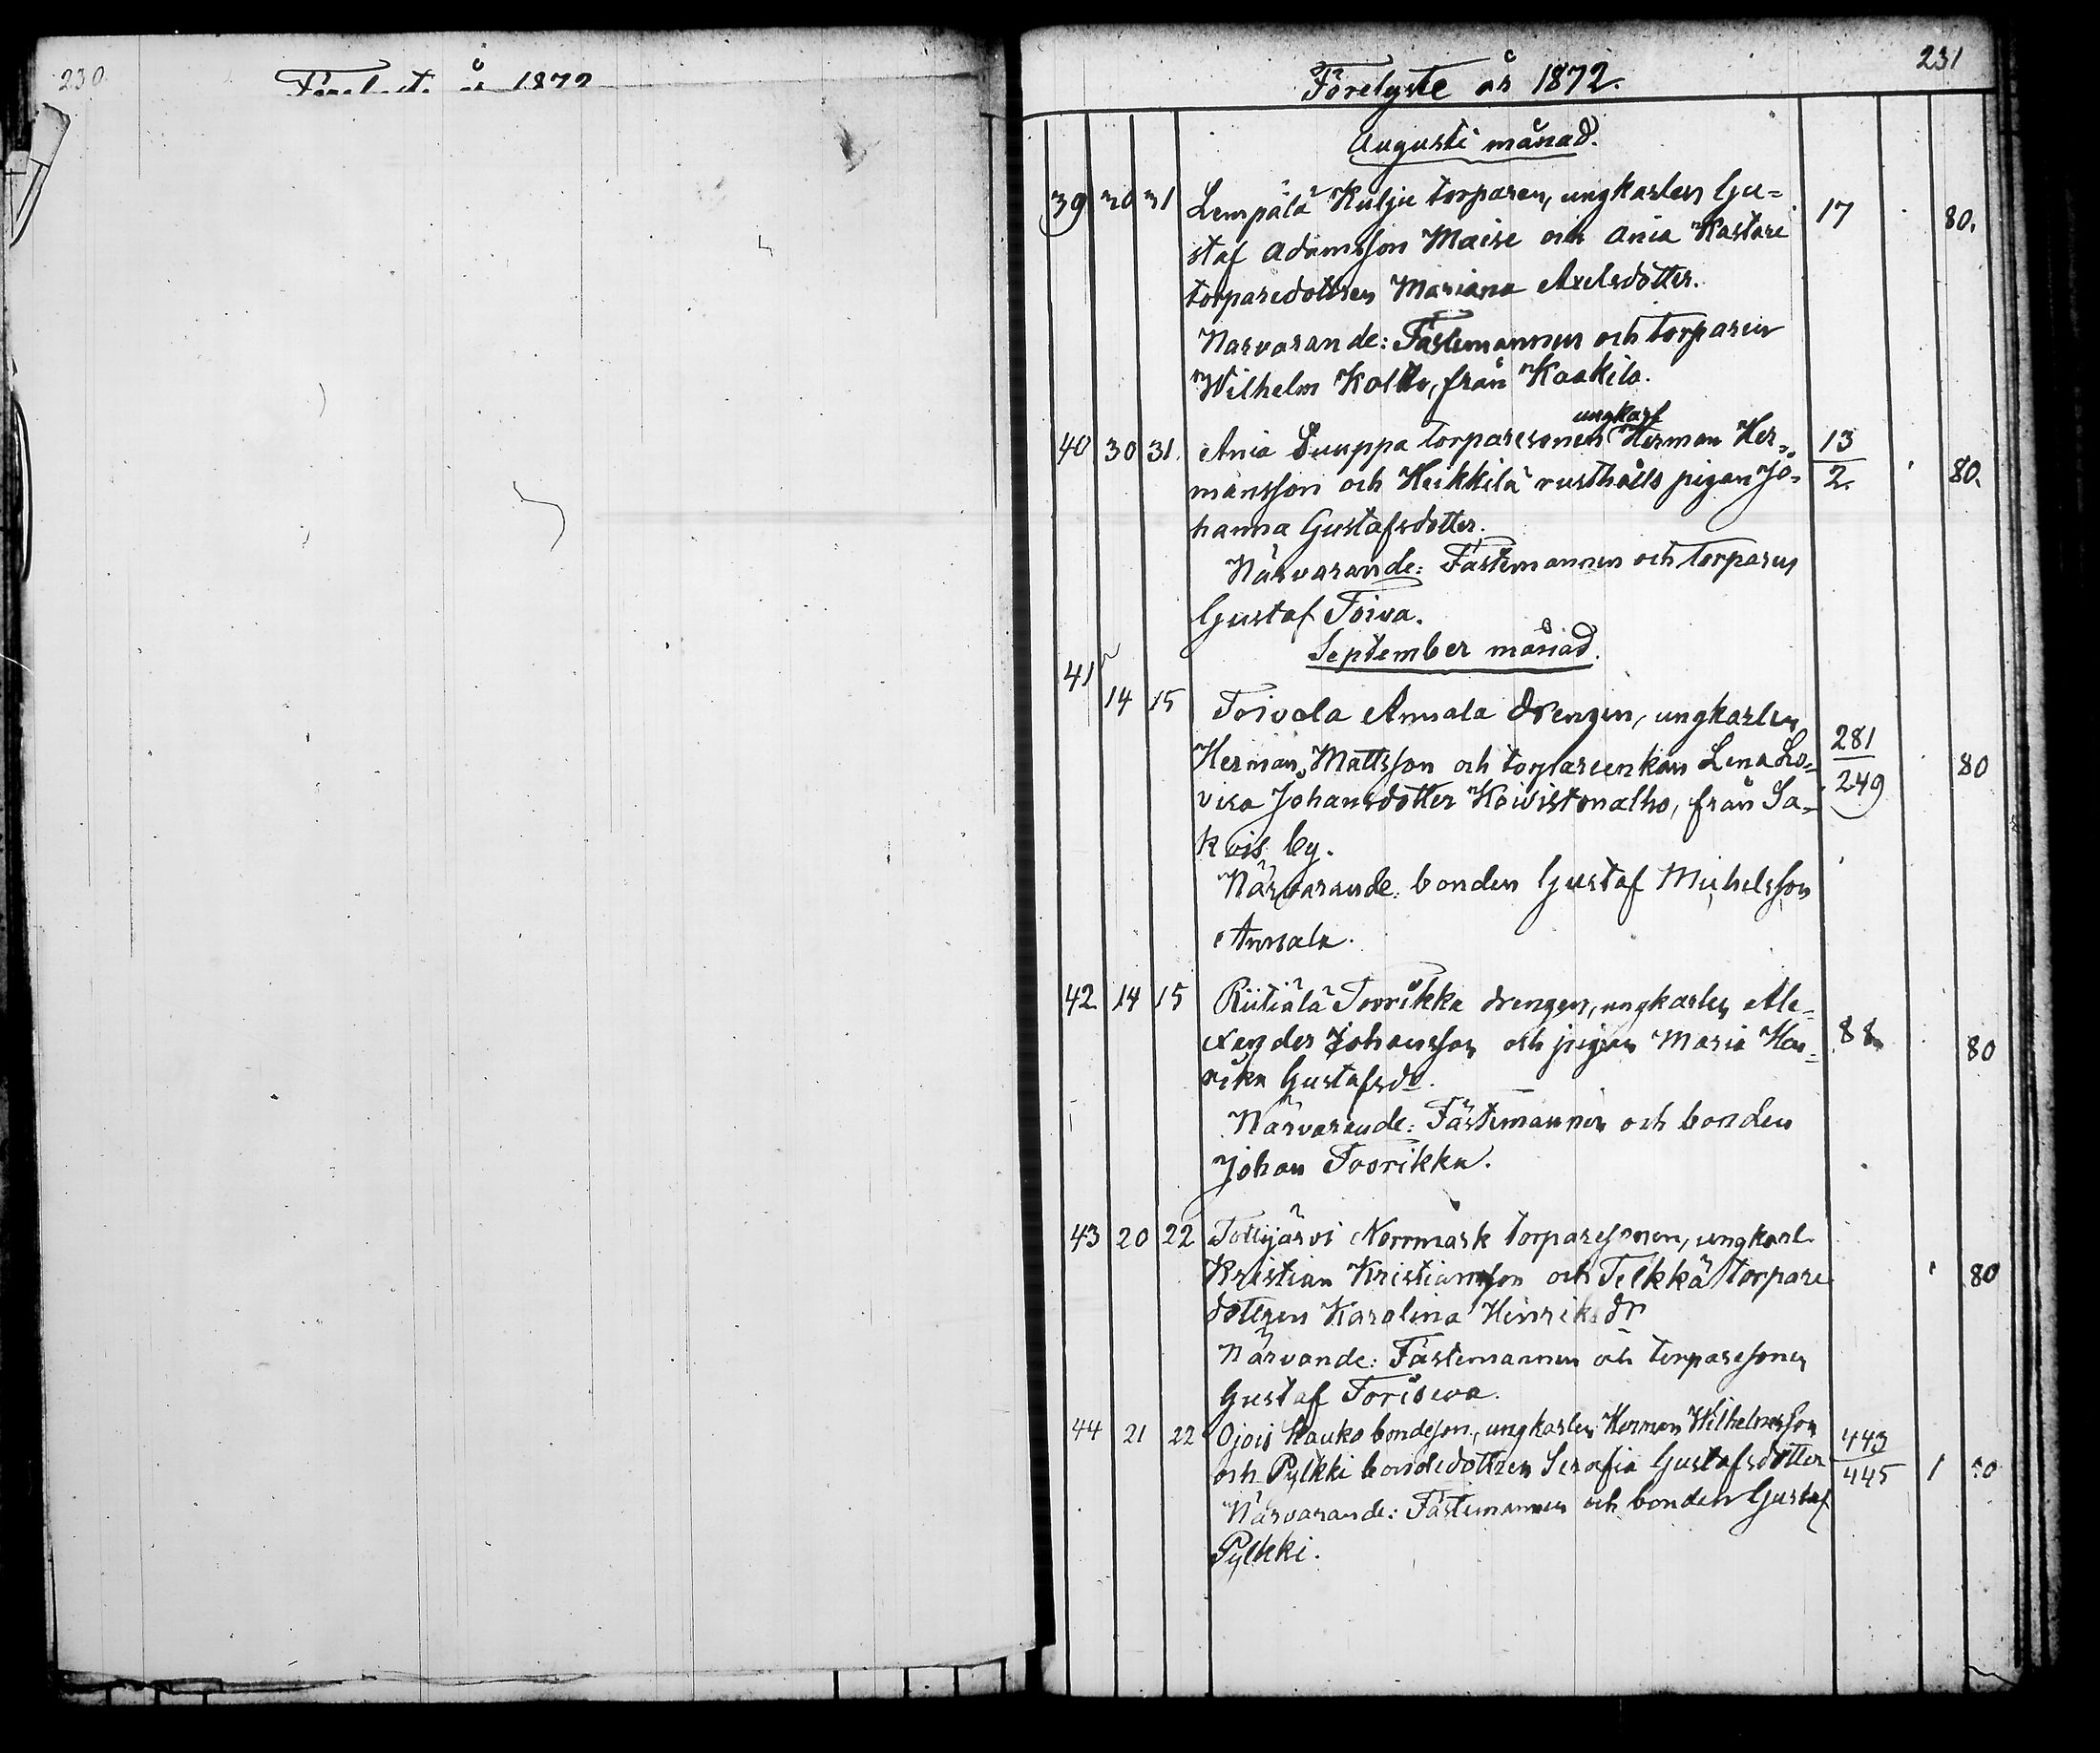 230
Förelyste år 1872
231
Förelyste år 1872.
Augusti månad.
39 30 31 Lempälä Kulju torparen, ungkarlen Gu= 17 80.
staf Adamsson Maise och Ania Kastari
torparedottren Mariana Axelsdotter.
Narvarande: Fästemannen och torparen
Wilhelm Kolko, från Kaakila.
ungkarl
40 30 31. Ania Suuppa torparesonen Herman Her= 13 80.
mansson och Heikkilä rusthålls pigan Jo= 2.
hanna Gustafsdotter.
Närvarande: Fästemannen och torparen
Gustaf Toiva.
September månad.
41
14 15 Toivola Annala drengen, ungkarlen
Herman Mattsson och torpareenkan Lena Lo= 281 80
visa Johansdotter Koivistonalho, från Sa= 249
kois by.
Närvarande: bonden Gustaf Michelsson
Annala.
42 14 15 Riitiälä Toorikka drengen, ungkarlen Ale=
xander Johansson och pigan Maria Hen= 88 80
rika Gustafsdr.
Närvarande: Fästemannen och bonden
Johan Toorikka.
43 20 22 Tottijärvi Norrmark torparesonen, ungkarl.
Kristian Kristiansson och Telkkä torpare 80
dottren Karolina Henriksdr
Närvande: Fästemannen och torparesonen
Gustaf Toriseva.
44 21 22 Ojois Kauko bondeson, ungkarlen Herman Wilhelmsson 443
och Pylkki bondedottren Serafia Gustafsdotter 445 1
Närvarande: Fästemannen och bonden Gustaf
Pylkki.